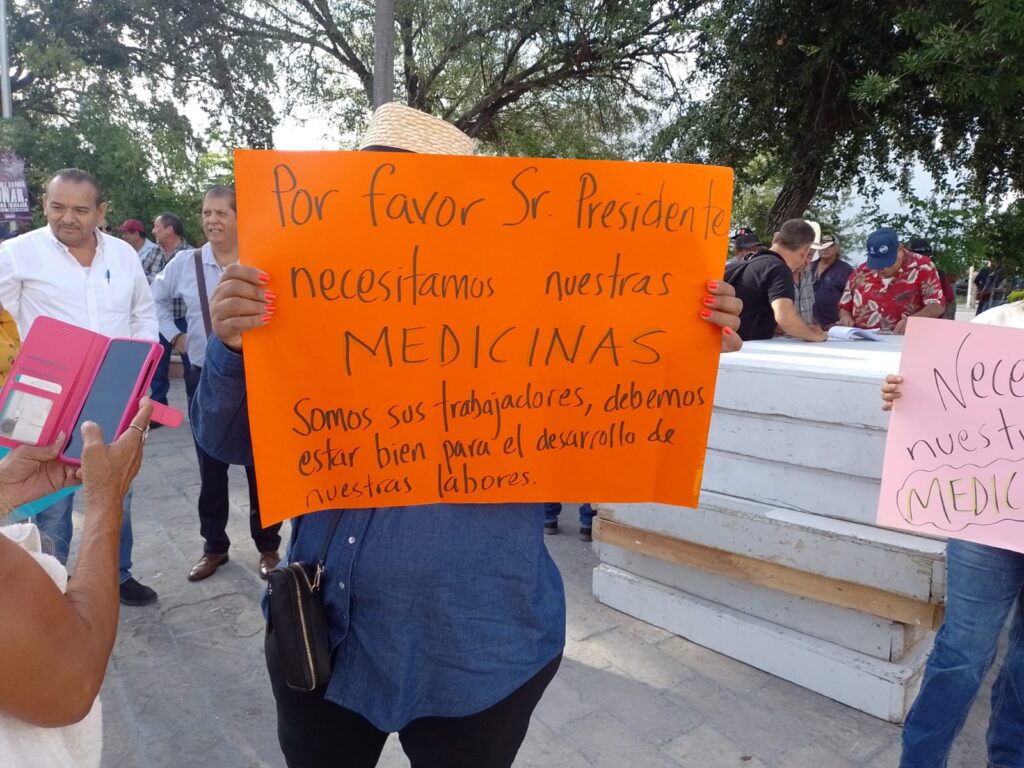 Por favor Sr. Presidente
necesitamos nuestras
MEDICINAS
Somos sus trabajadores, debemos
estar bien para el desarrollo de
nuestras labores.